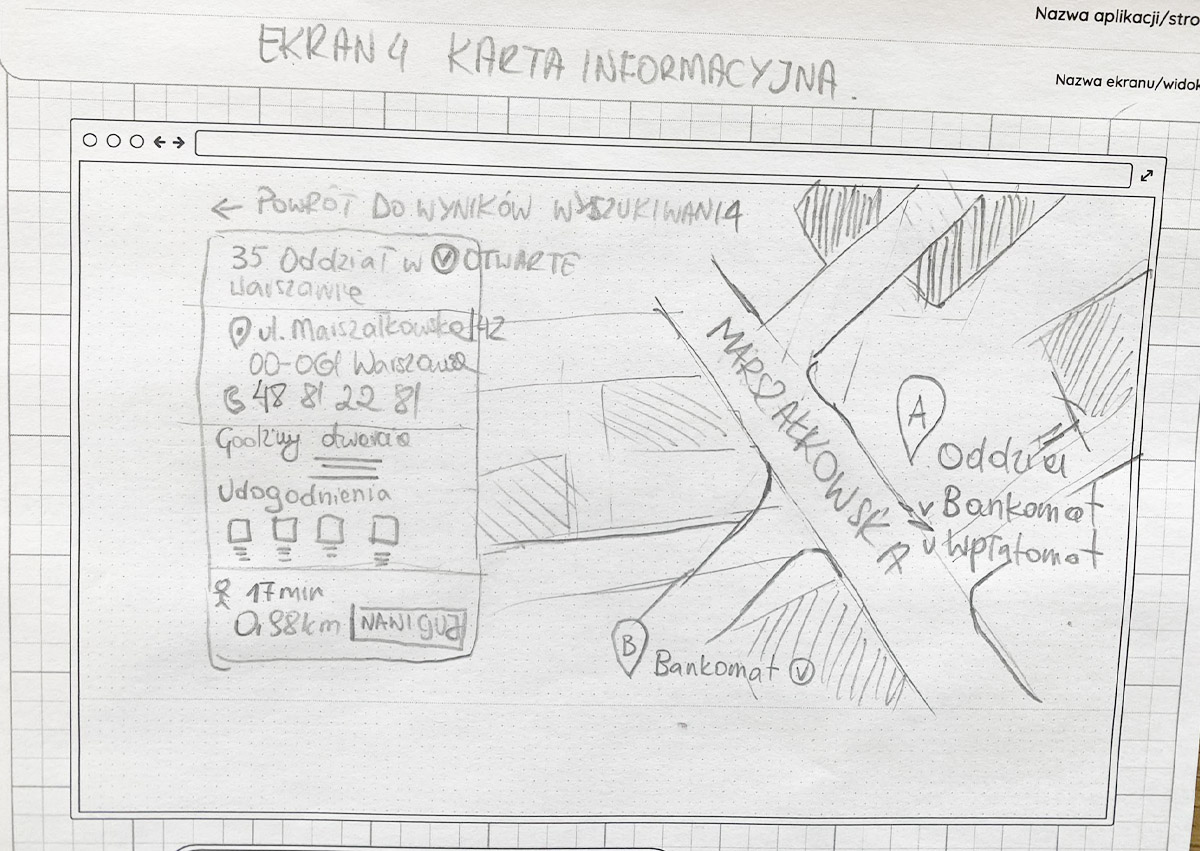 Nazwa aplikacji/stro
EKRAN 4 KARTA INFORMACYJNA.
Nazwa ekranu/widok
← POWRÓT DO WYNIKÓW WYSZUKIWANIA
35 Oddział w OTWARTE
Warszawie
ul. Marszałkowska 142
00-061 Warszawa
48 81 22 81
Godziny otwarcia
Udogodnienia
17 min
0,98km NAWIGUJ
MARSZAŁKOWSKA
A
Oddział
v Bankomat
v Wpłatomat
B
Bankomat v